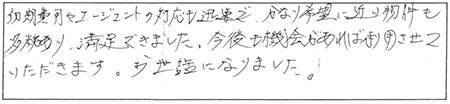 初期費用やエージェントの対応も迅速で、かなり希望に近い物件も
多数あり、満足できました。今後も機会があれば利用させて
いただきます。お世話になりました。